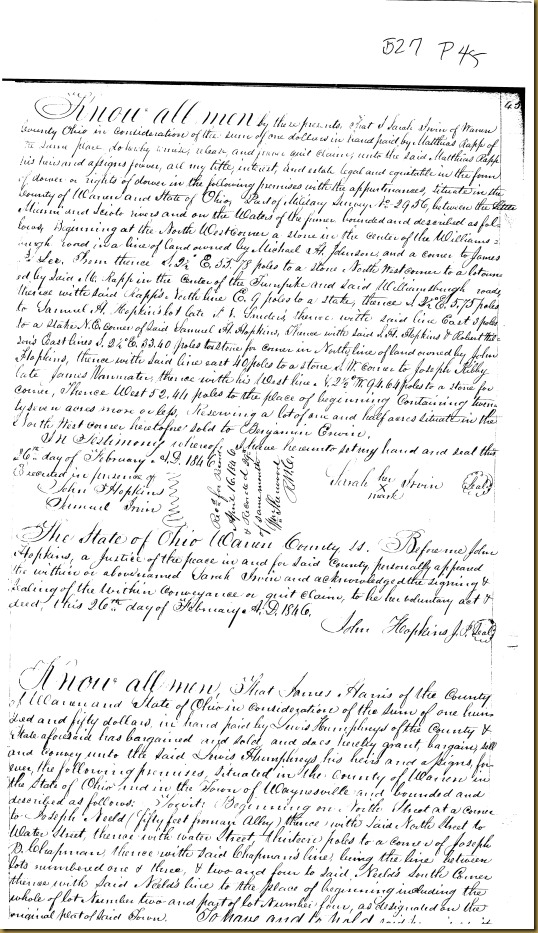 B27 P45
45
Know all men by these presents, That I Sarah Irwin of Warren
County Ohio in consideration of the sum of one dollar in hand paid by Matthias Rapp of
the same place do hereby remise, release, and forever quit claim, unto the said Matthias Rapp
his heirs and assigns forever, all my title, interest, and estate legal and equitable in the form
of dower or rights of dower in the following premises with the appurtenances, situate in the
County of Warren and State of Ohio, Part of Military Survey No 2956, between the Little
Miami and Scioto rivers and on the Waters of the former bounded and described as fol-
lows, Beginning at the North West Corner a stone in the center of the Williams-
burgh road in a line of land owned by Michael H. Johnson, and a corner to James
thence S. 2½° E. 55.78 poles to a stone North West corner to a lot own-
ed by said M. Rapp in the Center of the Turnpike and said Williamsburgh road,
thence with said Rapp's North line E. 9 poles to a stake, thence S. 2½° E. 5.75 poles
to Samuel H. Hopkins lot late thence with said line East 3 poles
to a stake N.E. corner of said Samuel H. Hopkins, thence with said S. H. Hopkins & Robert
son's East lines S. 2½° E. 33.40 poles to stone for corner in North line of land owned by John
Hopkins, thence with said line east 40 poles to a stone S. W. corner to Joseph Kibby
late James Vanmater, thence with his West line N. 2½° W. 94.64 poles to a stone for
corner, Thence West 52.44 poles to the place of beginning Containing twen-
ty seven acres more or less, Reserving a lot of one and half acres situate in the
North West corner heretofore sold to Benjamin Erwin.
In Testimony whereof, I have hereunto set my hand and seal this
26th day of February A.D. 1846
Executed in presence of
John Hopkins
Samuel Irwin
Rec'd for Record
April 16, 1846
& Recorded
of same month
Sherwood
Sarah her X mark Irwin Seal
The State of Ohio Warren County ss. Before me John
Hopkins, a Justice of the peace in and for said County, personally appeared
the within or above named Sarah Irwin and acknowledged the signing &
Sealing of the within Conveyance or quit claim, to be her voluntary act &
deed, this 26th day of February A.D. 1846.
John Hopkins J.P. Seal
Know all men, That James Harris of the County
of Warren and State of Ohio in consideration of the sum of one hun-
dred and fifty dollars, in hand paid by Lewis Humphreys of the County &
State aforesaid has bargained and sold, and does hereby grant, bargain, sell
and convey unto the said Lewis Humphreys his heirs and assigns, for-
ever, the following premises, situated in the County of Warren in
the State of Ohio and in the Town of Waynesville and bounded and
described as follows: Towit: Beginning on North Street at a corner
to Joseph Neeld (fifty feet from an Alley) thence with said North Street to
Water Street, thence with water Street, thirteen poles to a corner of Joseph
B. Chapman, thence with said Chapmans line, being the line between
lots numbered one & three, & two and four to said Neeld's South Corner
thence with said Neeld's line to the place of beginning including the
whole of lot Number two and part of lot Number four, as designated on the
original plat of said Town. To have and to hold